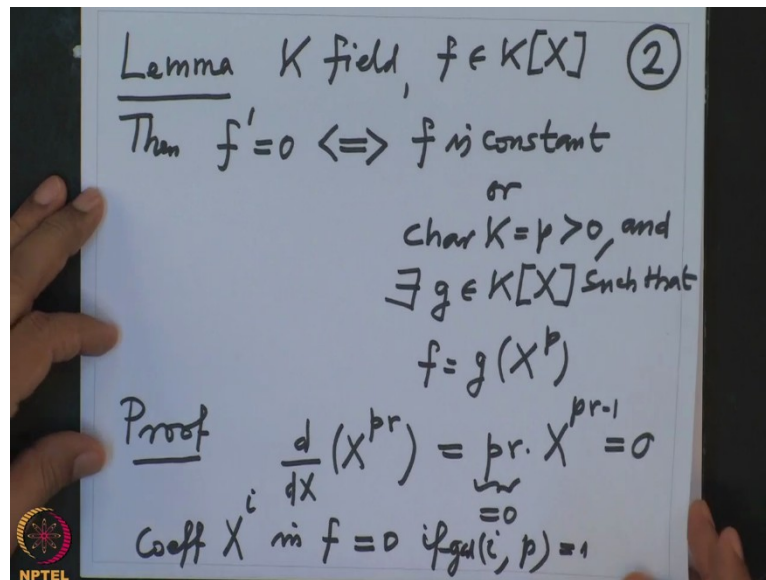 Lemma K field, f ∈ K[X] ②
Then f' = 0 <=> f is constant
or
char K = p > 0, and
∃ g ∈ K[X] such that
f = g(X^p)
Proof d/dX (X^{pr}) = pr. X^{pr-1} = 0
= 0
Coeff X^i in f = 0 if gcd(i, p) = 1
NPTEL